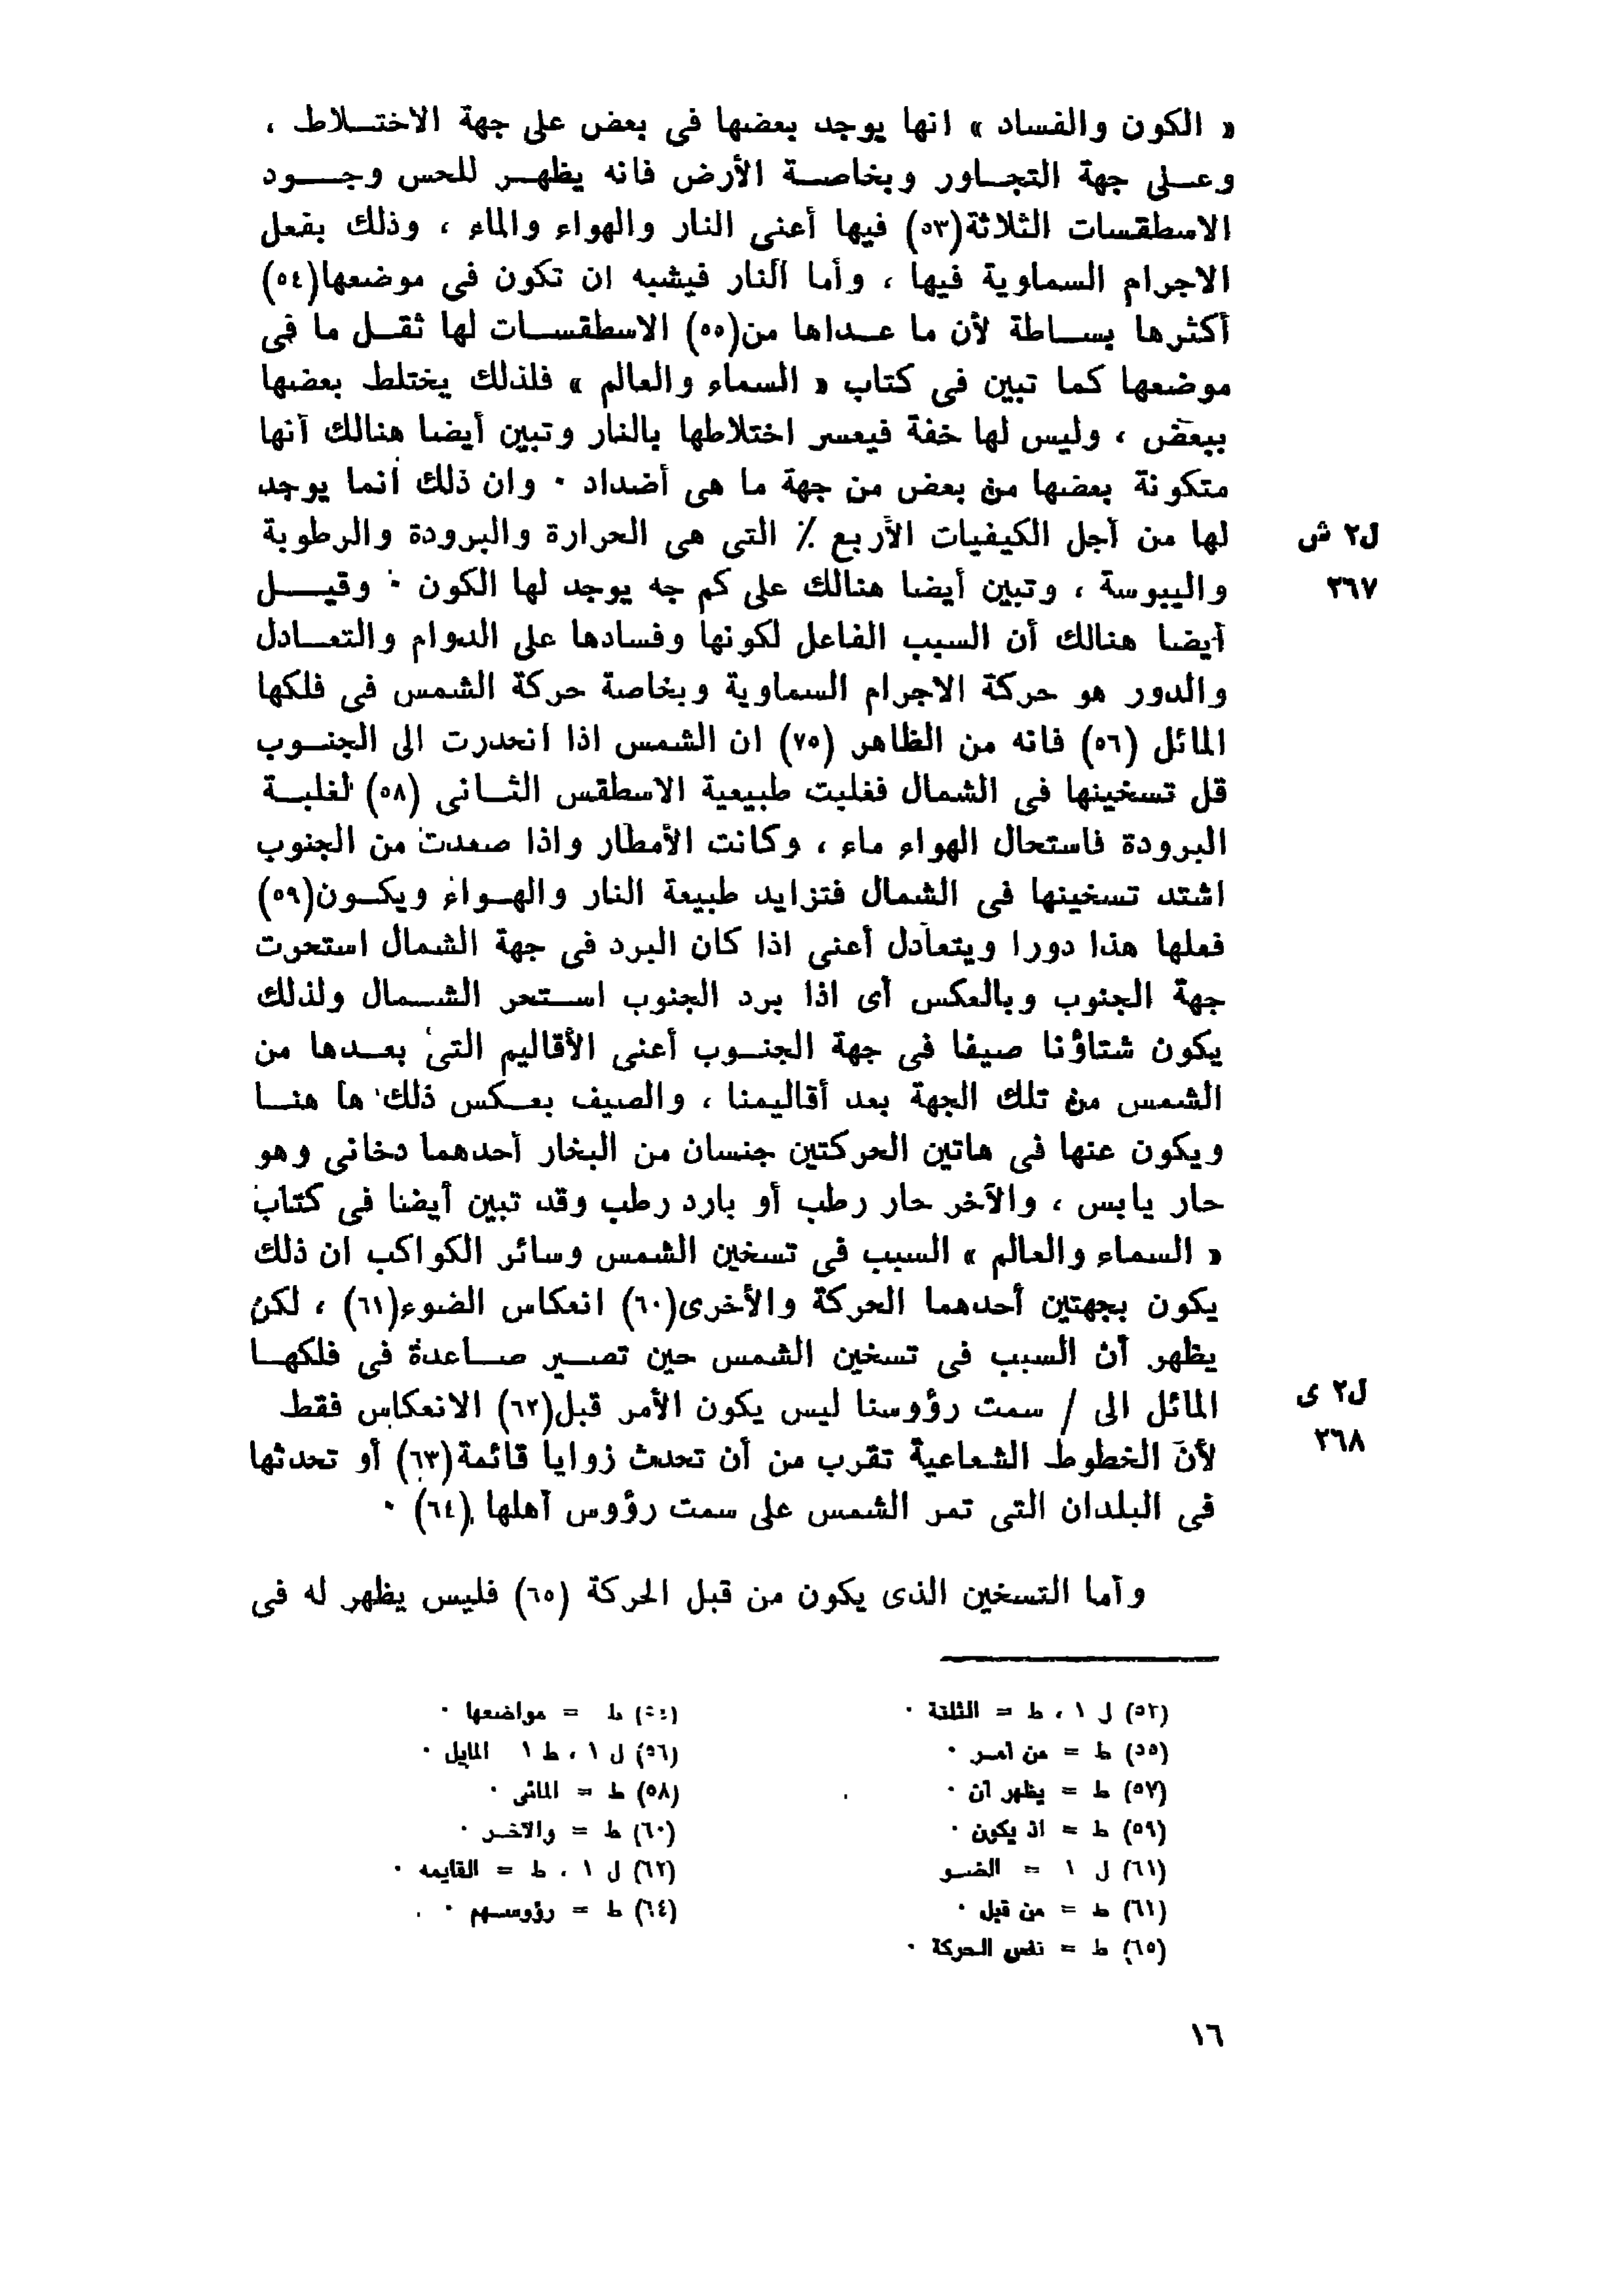 « الكون والفساد » انها يوجد بعضها فى بعض على جهة الاختلاط ،
وعلى جهة التجاور وبخاصة الأرض فانه يظهر للحس وجود
الاسطقسات الثلاثة(٥٣) فيها أعنى النار والهواء والماء ، وذلك بفعل
الاجرام السماوية فيها ، وأما النار فيشبه ان تكون فى موضعها(٥٤)
أكثرها بساطة لأن ما عداها من(٥٥) الاسطقسات لها ثقل ما فى
موضعها كما تبين فى كتاب « السماء والعالم » فلذلك يختلط بعضها
ببعض ، وليس لها خفة فيعسر اختلاطها بالنار وتبين أيضا هنالك أنها
متكونة بعضها من بعض من جهة ما هى أضداد ٠ وان ذلك أنما يوجد
لها من أجل الكيفيات الأربع ٪ التى هى الحرارة والبرودة والرطوبة
ل٢ ش
واليبوسة ، وتبين أيضا هنالك على كم جه يوجد لها الكون ٠ وقيل
٢٦٧
أيضا هنالك أن السبب الفاعل لكونها وفسادها على الدوام والتعادل
والدور هو حركة الاجرام السماوية وبخاصة حركة الشمس فى فلكها
المائل (٥٦) فانه من الظاهر (٧٥) ان الشمس اذا انحدرت الى الجنوب
قل تسخينها فى الشمال فغلبت طبيعية الاسطقس الثانى (٥٨) لغلبة
البرودة فاستحال الهواء ماء ، وكانت الأمطار واذا صعدت من الجنوب
اشتد تسخينها فى الشمال فتزايد طبيعة النار والهواء ويكون(٥٩)
فعلها هذا دورا ويتعادل أعنى اذا كان البرد فى جهة الشمال استحرت
جهة الجنوب وبالعكس أى اذا برد الجنوب استحر الشمال ولذلك
يكون شتاؤنا صيفا فى جهة الجنوب أعنى الأقاليم التى بعدها من
الشمس من تلك الجهة بعد أقاليمنا ، والصيف بعكس ذلك ها هنا
ويكون عنها فى هاتين الحركتين جنسان من البخار أحدهما دخانى وهو
حار يابس ، والآخر حار رطب أو بارد رطب وقد تبين أيضا فى كتاب
« السماء والعالم » السبب فى تسخين الشمس وسائر الكواكب ان ذلك
يكون بجهتين أحدهما الحركة والأخرى(٦٠) انعكاس الضوء(٦١) ، لكن
يظهر أن السبب فى تسخين الشمس حين تصير صاعدة فى فلكها
المائل الى / سمت رؤوسنا ليس يكون الأمر قبل(٦٢) الانعكاس فقط
ل٢ ى
لأن الخطوط الشعاعية تقرب من أن تحدث زوايا قائمة(٦٣) أو تحدثها
٢٦٨
فى البلدان التى تمر الشمس على سمت رؤوس أهلها (٦٤) ٠
وأما التسخين الذى يكون من قبل الحركة (٦٥) فليس يظهر له فى
(٥٣) ل ١ ، ط = الثلثة ٠
(٥٤) ط = مواضعها ٠
(٥٥) ط = من أمر ٠
(٥٦) ل ١ ، ط ١ المايل ٠
(٥٧) ط = يظهر أن ٠
(٥٨) ط = المائى ٠
(٥٩) ط = اذ يكون ٠
(٦٠) ط = والآخر ٠
(٦١) ل ١ = الضو
(٦٢) ل ١ ، ط = القايمه ٠
(٦١) ط = من قبل ٠
(٦٤) ط = رؤوسهم ٠
(٦٥) ط = نفس الحركة ٠
١٦